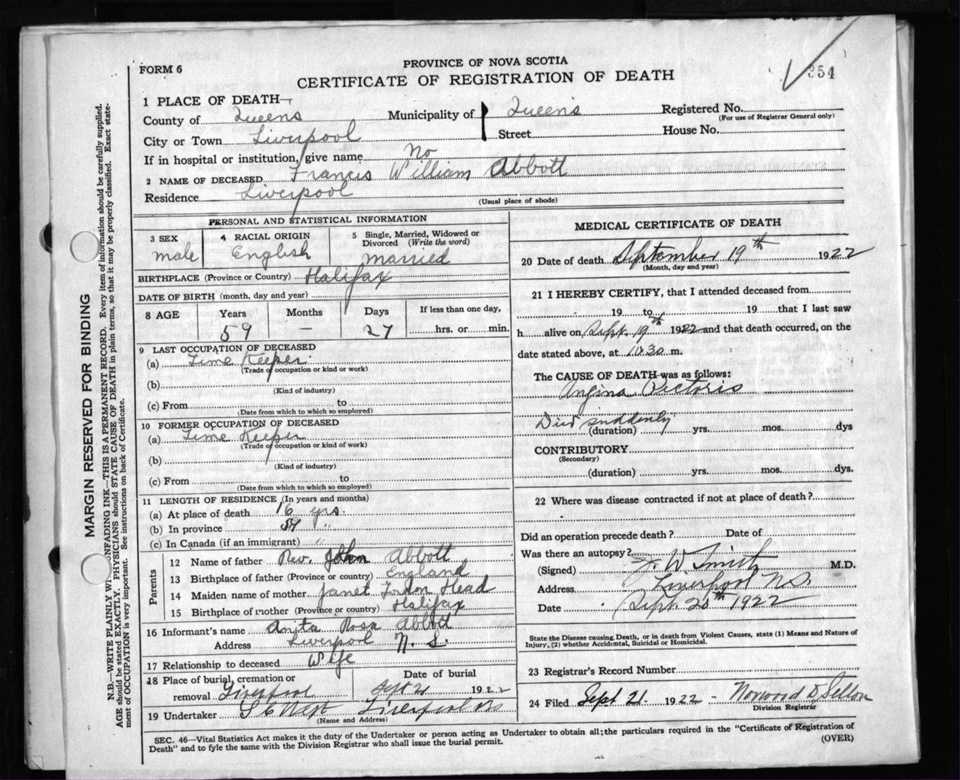 PROVINCE OF NOVA SCOTIA
FORM 6
CERTIFICATE OF REGISTRATION OF DEATH
354
1 PLACE OF DEATH—
County of Queens Municipality of Queens Registered No.
(For use of Registrar General only)
City or Town Liverpool Street House No.
If in hospital or institution, give name No
2 NAME OF DECEASED Francis William Abbott
Residence Liverpool
(Usual place of abode)
PERSONAL AND STATISTICAL INFORMATION
3 SEX male
4 RACIAL ORIGIN English
5 Single, Married, Widowed or Divorced (Write the word) Married
BIRTHPLACE (Province or Country) Halifax
DATE OF BIRTH (month, day and year)
8 AGE Years 59 Months — Days 27 If less than one day, hrs. or min.
9 LAST OCCUPATION OF DECEASED
(a) Time Keeper
(Trade of occupation or kind or work)
(b)
(Kind of industry)
(c) From to
(Date from which to which so employed)
10 FORMER OCCUPATION OF DECEASED
(a) Time Keeper
(Trade of occupation or kind of work)
(b)
(Kind of industry)
(c) From to
(Date from which to which so employed)
11 LENGTH OF RESIDENCE (In years and months)
(a) At place of death 16 yrs.
(b) In province 59 "
(c) In Canada (if an immigrant) "
Parents
12 Name of father Rev. John Abbott
13 Birthplace of father (Province or country) England
14 Maiden name of mother Janet Head
15 Birthplace of mother (Province or country) Halifax
16 Informant's name Anita Rosa Abbott
Address Liverpool N. S.
17 Relationship to deceased Wife
18 Place of burial, cremation or removal Liverpool
Date of burial Sept 21 1922
19 Undertaker Liverpool NS
(Name and Address)
MEDICAL CERTIFICATE OF DEATH
20 Date of death September 19th 1922
(Month, day and year)
21 I HEREBY CERTIFY, that I attended deceased from
19 to 19 that I last saw
h alive on Sept. 19th 1922 and that death occurred, on the
date stated above, at 10.30 m.
The CAUSE OF DEATH was as follows:
Angina Pectoris
Died suddenly
(duration) yrs. mos. dys
CONTRIBUTORY
(Secondary)
(duration) yrs. mos. dys.
22 Where was disease contracted if not at place of death?
Did an operation precede death? Date of
Was there an autopsy?
(Signed) J. W. Smith M.D.
Address Liverpool N.S.
Date Sept. 20th 1922
State the Disease causing Death, or in death from Violent Causes, state (1) Means and Nature of
Injury, (2) whether Accidental, Suicidal or Homicidal.
23 Registrar's Record Number
24 Filed Sept 21. 1922 Norwood D. Sellon
Division Registrar
SEC. 46—Vital Statistics Act makes it the duty of the Undertaker or person acting as Undertaker to obtain all the particulars required in the "Certificate of Registration of
Death" and to fyle the same with the Division Registrar who shall issue the burial permit.
(OVER)
MARGIN RESERVED FOR BINDING
N.B.—WRITE PLAINLY UNFADING INK—THIS IS A PERMANENT RECORD. Every item of information should be carefully supplied.
AGE should be stated EXACTLY. PHYSICIANS should STATE CAUSE OF DEATH in plain terms, so that it may be properly classified. Exact state-
ment of OCCUPATION is very important. See instructions on back of Certificate.